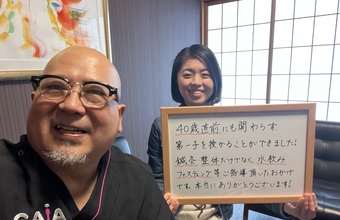 40歳直前にも関わらず
第一子を授かることができました!
鍼灸整体だけでなく、水飲み
ファスティング等ご指導頂いたおかげ
です。本当にありがとうございます!
CAIA